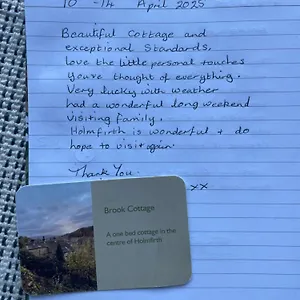 10 -14 April 2025
Beautiful Cottage and
exceptional Standards,
love the little personal touches
you've thought of everything.
Very lucky with weather
had a wonderful long weekend
visiting family.
Holmfirth is wonderful + do
hope to visit again.
Thank You.
xx
Brook Cottage
A one bed cottage in the
centre of Holmfirth